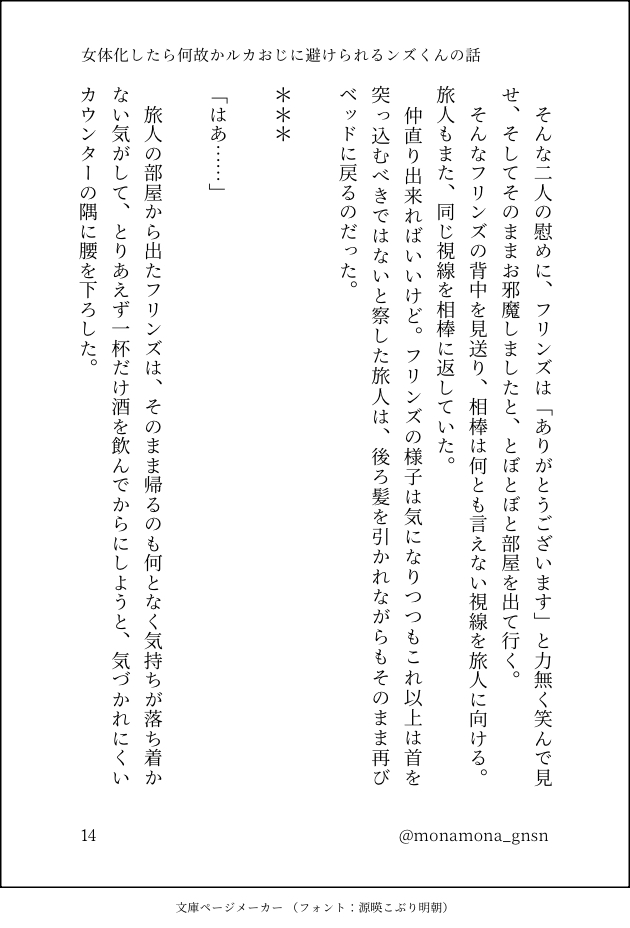 女体化したら何故かルカおじに避けられるンズくんの話
そんな二人の慰めに、フリンズは「ありがとうございます」と力無く笑んで見
せ、そしてそのままお邪魔しましたと、とぼとぼと部屋を出て行く。
そんなフリンズの背中を見送り、相棒は何とも言えない視線を旅人に向ける。
旅人もまた、同じ視線を相棒に返していた。
仲直り出来ればいいけど。フリンズの様子は気になりつつもこれ以上は首を
突っ込むべきではないと察した旅人は、後ろ髪を引かれながらもそのまま再び
ベッドに戻るのだった。
＊＊＊
「はあ……」
旅人の部屋から出たフリンズは、そのまま帰るのも何となく気持ちが落ち着か
ない気がして、とりあえず一杯だけ酒を飲んでからにしようと、気づかれにくい
カウンターの隅に腰を下ろした。
14
@monamona_gnsn
文庫ページメーカー （フォント：源暎こぶり明朝）